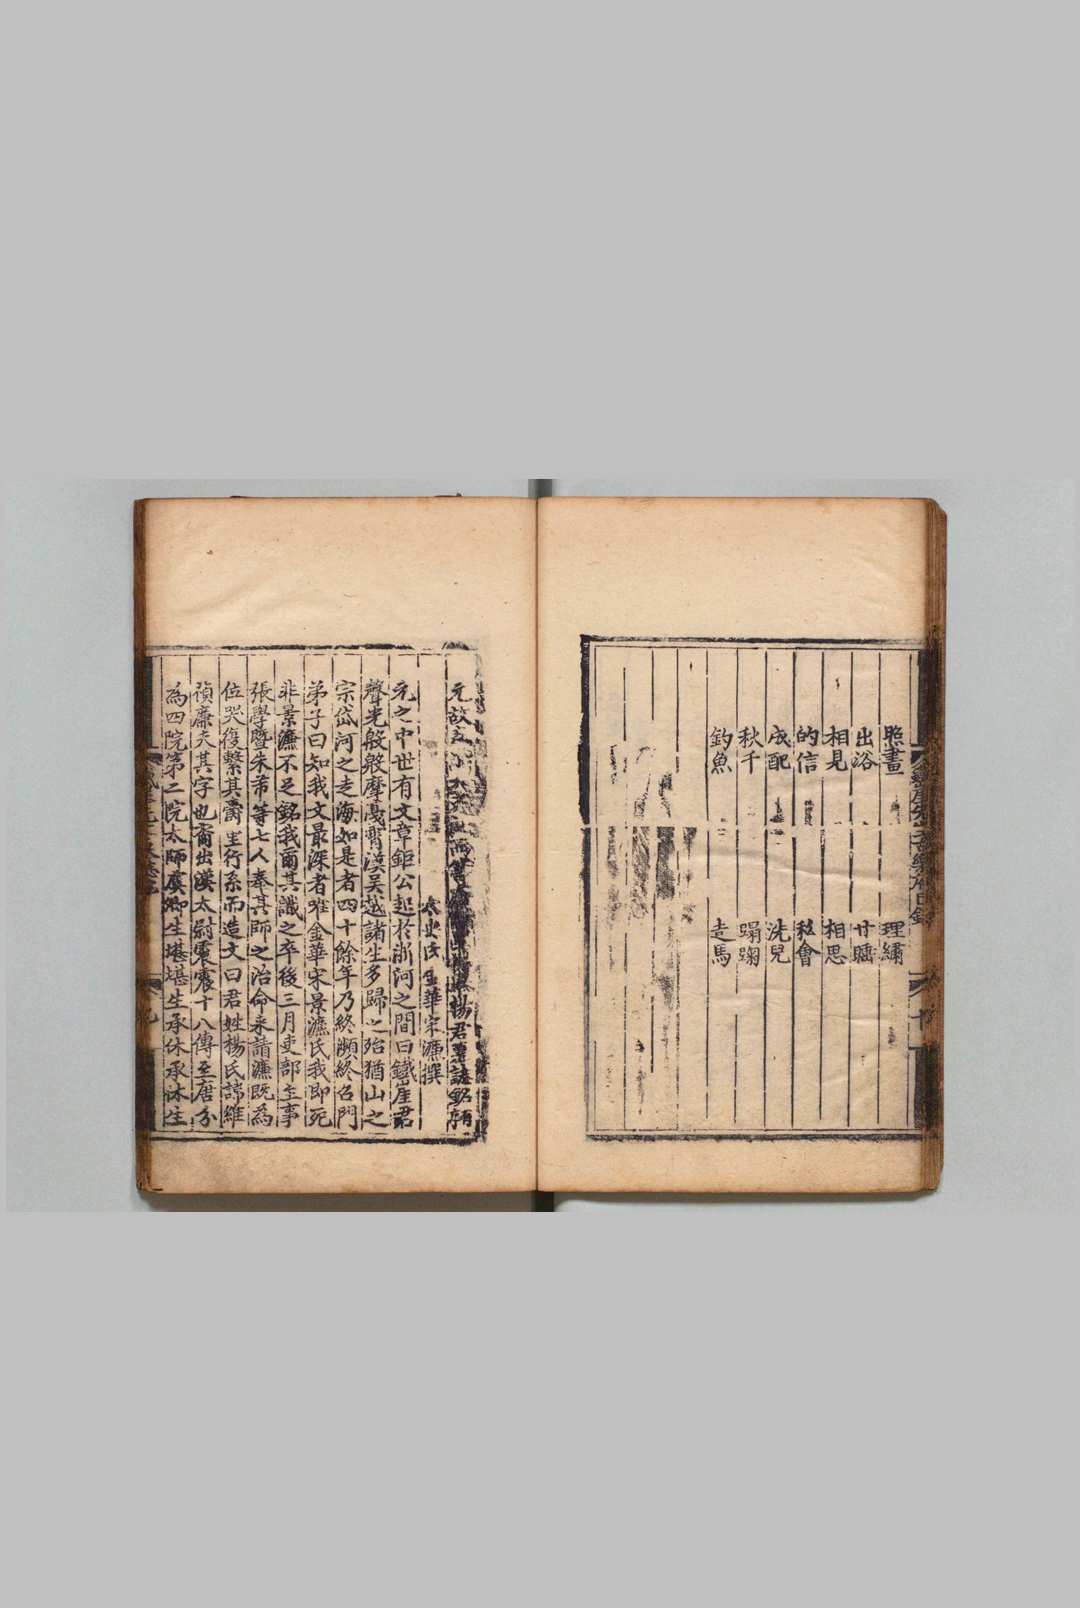 照畫 理繡
出浴 甘睡
相見 相思
的信 私會
成配 洗兒
秋千 蹋踘
釣魚 走馬
元故 楊君墓誌銘
太史氏金華宋濂撰
元之中世有文章鉅公起於浙河之間曰鐵崖君
聲光殷殷摩戛霄漢吳越諸生多歸之殆猶山之
宗岱河之走海如是者四十餘年乃終瀕終召門
弟子曰知我文最深者唯金華宋景濂氏我即死
非景濂不足銘我爾其識之卒後三月吏部主事
張學暨朱芾等七人奉其師之治命來請濂既為
位哭復繫其爵里行系而造文曰君姓楊氏諱維
禎廉夫其字也裔出漢太尉震震十八傳至唐分
為四院第二院太師虞卿生堪堪生承休承休生